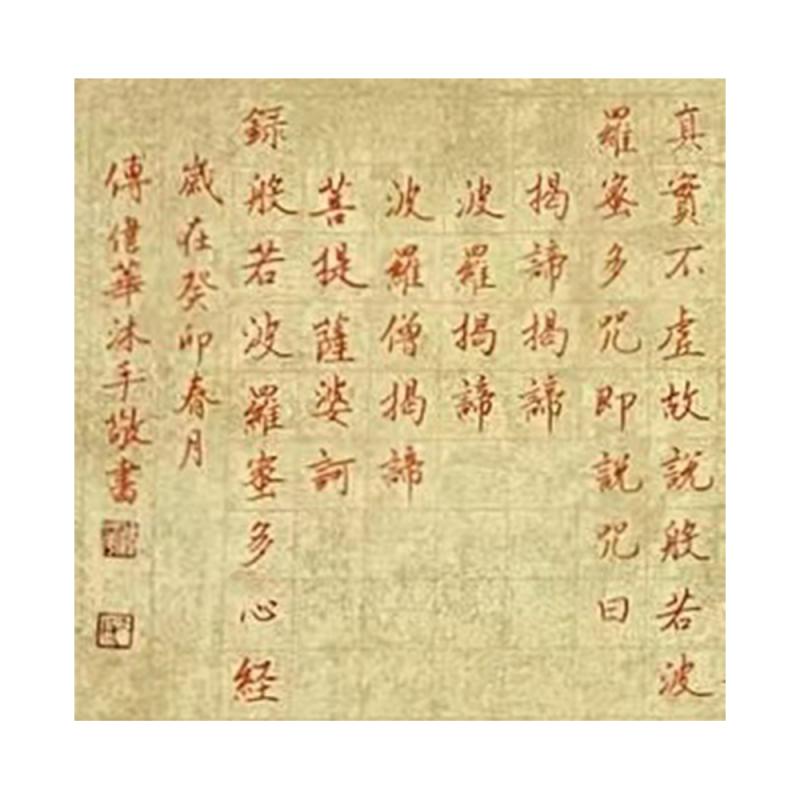 真實不虛故說般若波
羅蜜多咒即說咒曰
揭諦揭諦
波羅揭諦
波羅僧揭諦
菩提薩婆訶
録般若波羅蜜多心経
歲在癸卯春月
傅偉華沐手敬書